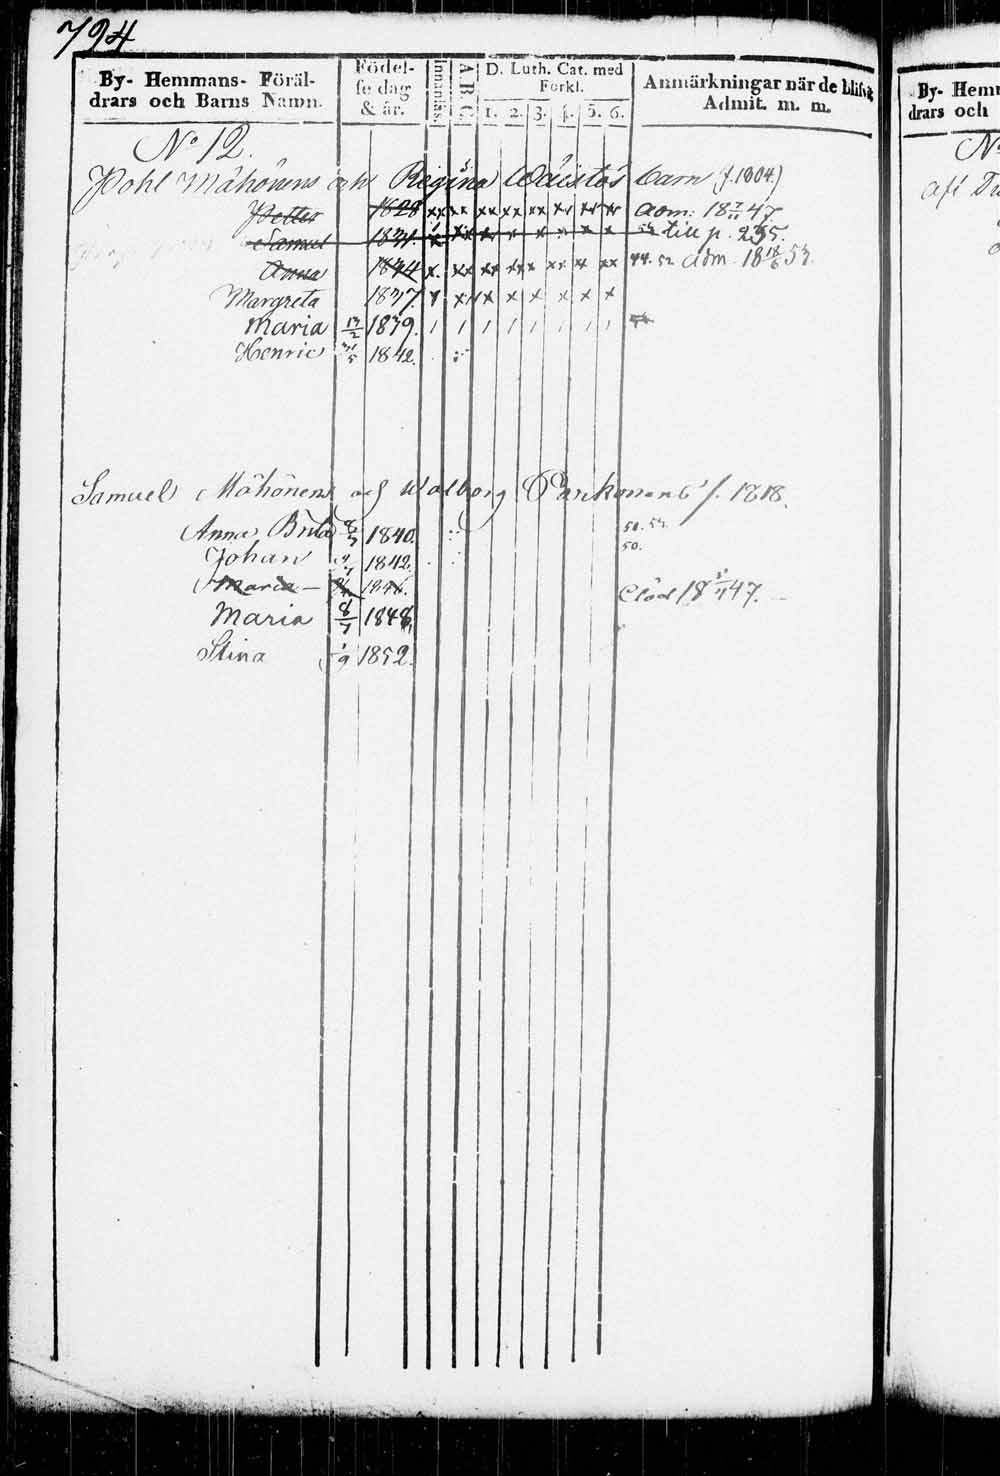 794
By- Hemmans- Föräl-
drars och Barns Namn.
Födel-
se dag
& år.
Innanläs.
A B C
D. Luth. Cat. med
Förkl.
1. 2. 3. 4. 5. 6.
Anmärkningar när de blifvit
Admit. m. m.
No 12.
Pohl Mähönens och Regina Wäistös barn (f. 1804)
Petter 1828 adm. 18 7/11 47.
Samuel 1831. till p. 235.
Anna 1834 44. 52 adm. 18 18/6 53.
Margreta 1837.
Maria 13/2 1839.
Henric 31/5 1842.
Samuel Mähönens och Walborg Parkonens f. 1818.
Anna Brita 8/7 1840. 50. 52.
Johan 1842. 50.
Maria 1846. död 18 47.
Maria 8/7 1848.
Stina 1/9 1852.
By- Hemm
drars och
No